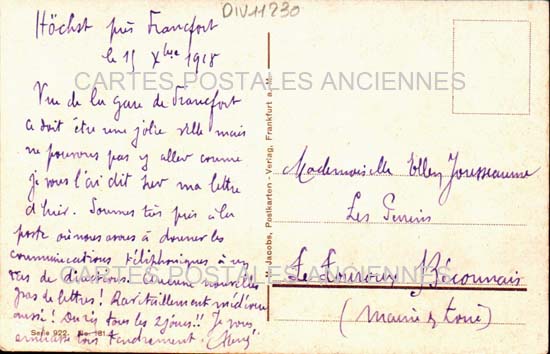 DIV11230
Höchst près Francfort
le 15 Xbre 1918
CARTES POSTALES ANCIENNES
Vue de la gare de Francfort
Ce doit être une jolie ville mais
ne pouvons pas y aller comme
je vous l'ai dit sur ma lettre
d'hier. Sommes très près à la
poste où nous avons à donner les
communications téléphoniques à
tas de directions. Aucune nouvelle
pas de lettres! Ravitaillement médiocre
aussi! Du riz tous les 2 jours!! Je vous
embrasse tous tendrement.
Serie 922. No. 181
M. Jacobs, Postkarten-Verlag, Frankfurt a. M.
Mademoiselle Ellen Jousseaume
Les
Le Louroux Béconnais
(Maine & Loire)
CARTES POSTALES ANCIENNES